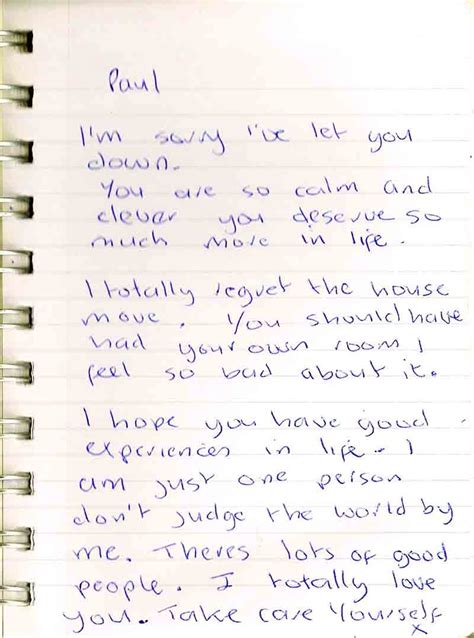 Paul
I'm sorry I've let you
down.
You are so calm and
clever you deserve so
much more in life.
I totally regret the house
move. You should have
had your own room I
feel so bad about it.
I hope you have good
experiences in life - I
am just one person
don't judge the world by
me. Theres lots of good
people. I totally love
you. Take care Yourself
x